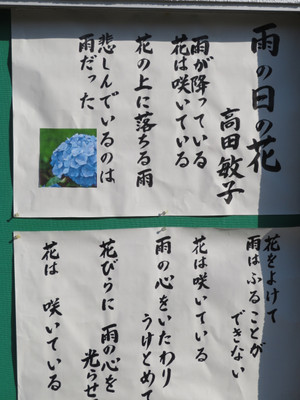 雨の日の花
高田敏子
雨が降っている
花は咲いている
花の上に落ちる雨
悲しんでいるのは
雨だった
花をよけて
雨はふることが
できない
花は咲いている
雨の心をいたわり
うけとめて
花びらに 雨の心を
光らせ
花は 咲いている